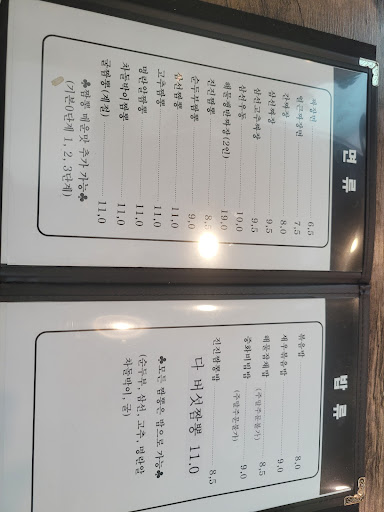 면류
짜장면 6,5
7,5
간짜장 8,0
삼선짜장 9,5
삼선고추짜장 9,5
삼선우동 10,0
해물쟁반짜장(2인) 19,0
진진짬뽕 8,5
순두부짬뽕 9,0
삼선짬뽕 11,0
고추짬뽕 11,0
명란알짬뽕 11,0
차돌박이짬뽕 11,0
굴짬뽕(계절) 11,0
♣짬뽕 매운맛 추가 가능♣
(기본0단계 1, 2, 3단계)
밥류
볶음밥 8,0
새우볶음밥 9,0
해물잡채밥 (주말주문불가) 8,5
중화비빔밥 (주말주문불가) 9,0
진진짬뽕밥 8,5
다 버섯짬뽕 11,0
♣모든 짬뽕은 밥으로 가능♣
(순두부, 삼선, 고추, 명란알
차돌박이, 굴)